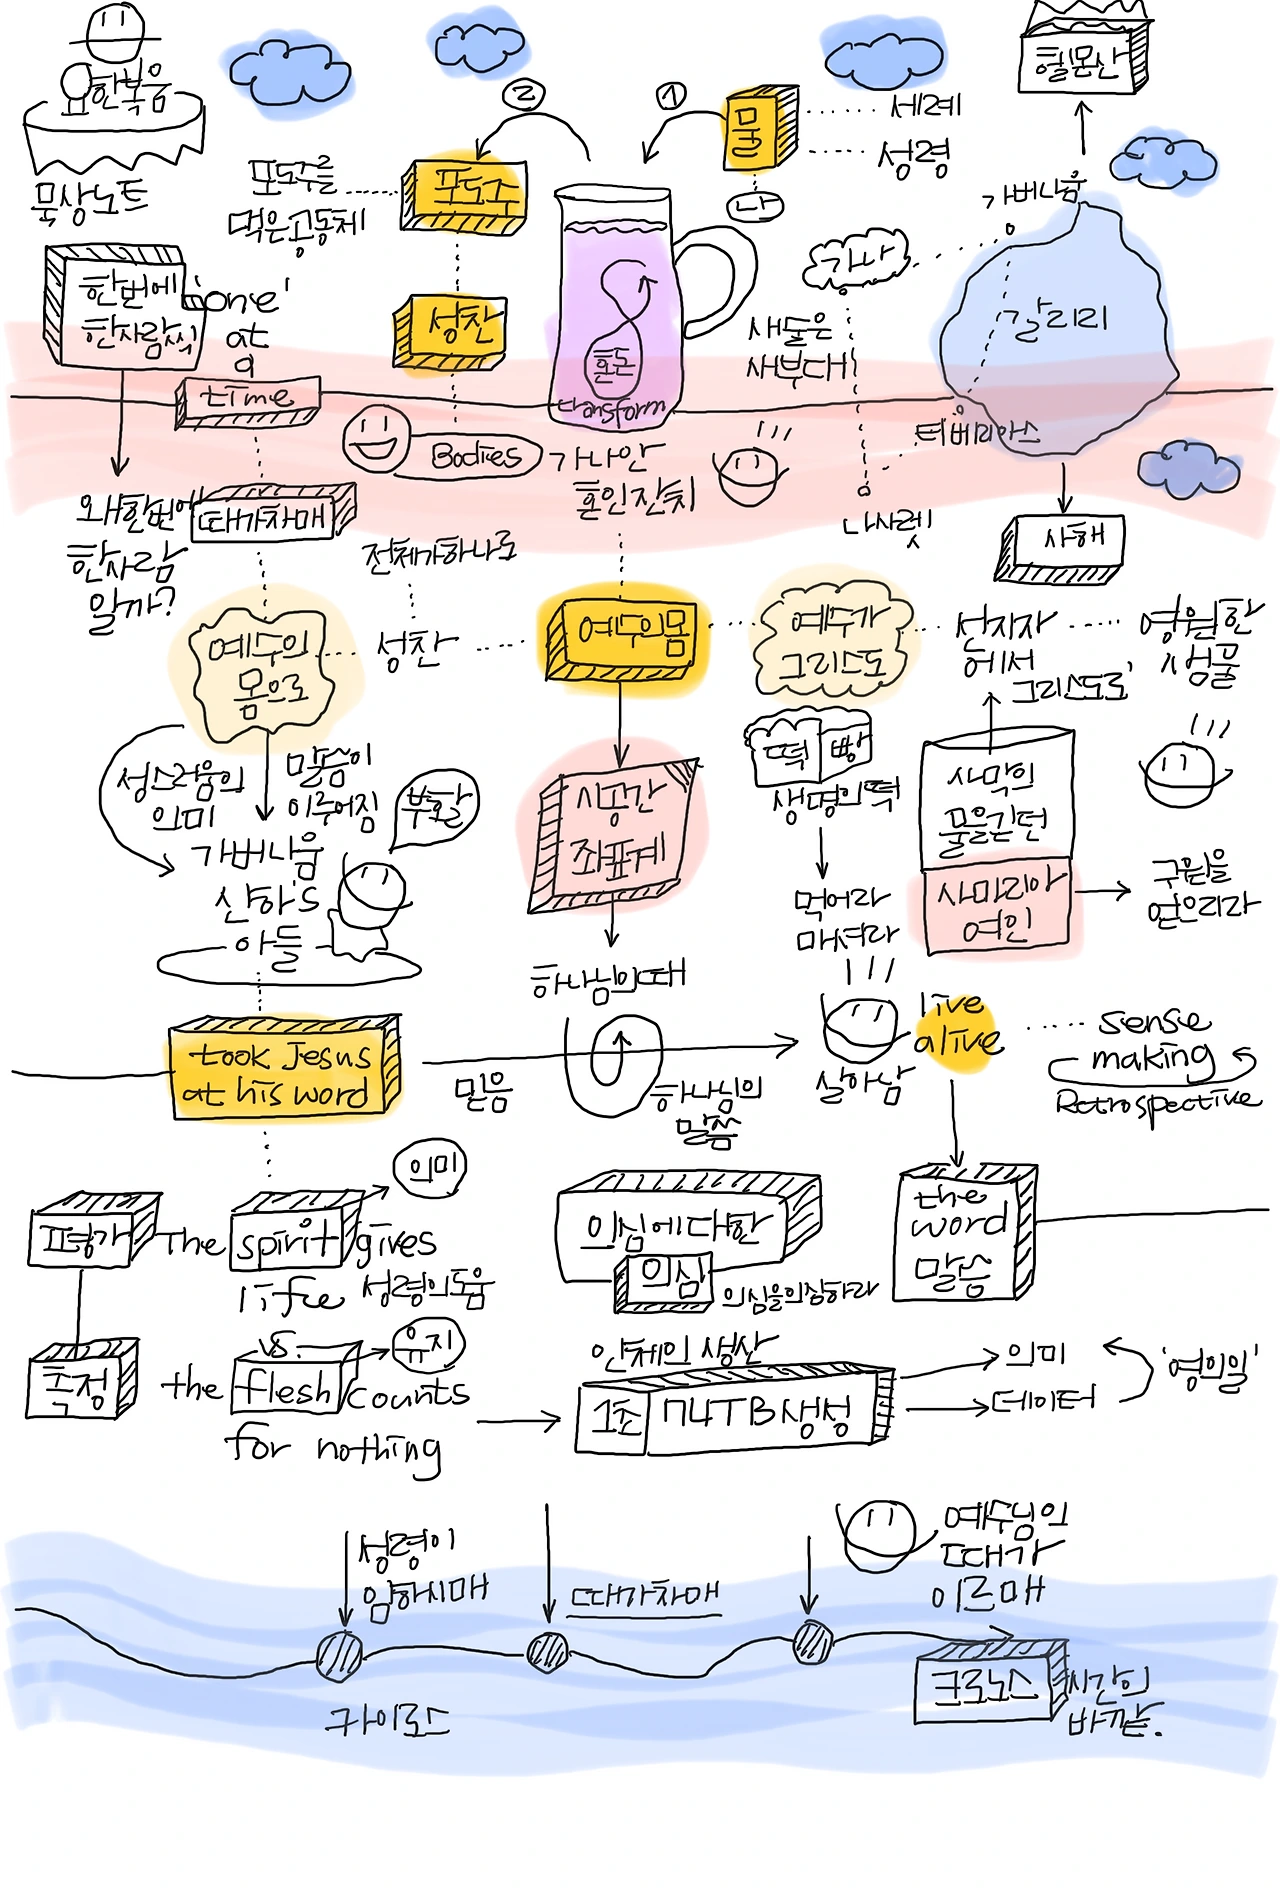 한복음
묵상노트
한번에
한사람씩
'one'
at
a
time
왜한번에
한사람
일까?
때가차매
포도주를
먹은공동체
포도주
성찬
Bodies
②
①
물
세례
성령
나
혼돈
transform
가나안
혼인잔치
헬몬산
가버나움
가나
갈리리
새술은
새부대
티베리아스
나사렛
사해
전체가하나로
예수의
몸으로
성찬
예수의몸
예수가
그리스도
선지자
에서
그리스도로'
영원한
샘물
성스러움의
의미
말씀이
이루어짐
부활
가버나움
신하's
아들
시공간
좌표계
하나님의때
떡
빵
생명의떡
먹어라
마셔라
사막의
물을긷던
사마리아
여인
구원을
얻으리라
took Jesus
at his word
믿음
하나님의
말씀
살아남
live
alive
sense
making
Retrospective
평가
측정
The spirit gives
life
의미
성령의도움
vs.
유지
the flesh counts
for nothing
의심에대한
의심
의심을의심하라
the
word
말씀
인체의 생산
1초
174TB생성
의미
데이터
'영의일'
성령이
임하시매
때가차매
예수님의
때가
이르매
카이로스
크로노스
시간의
바깥.